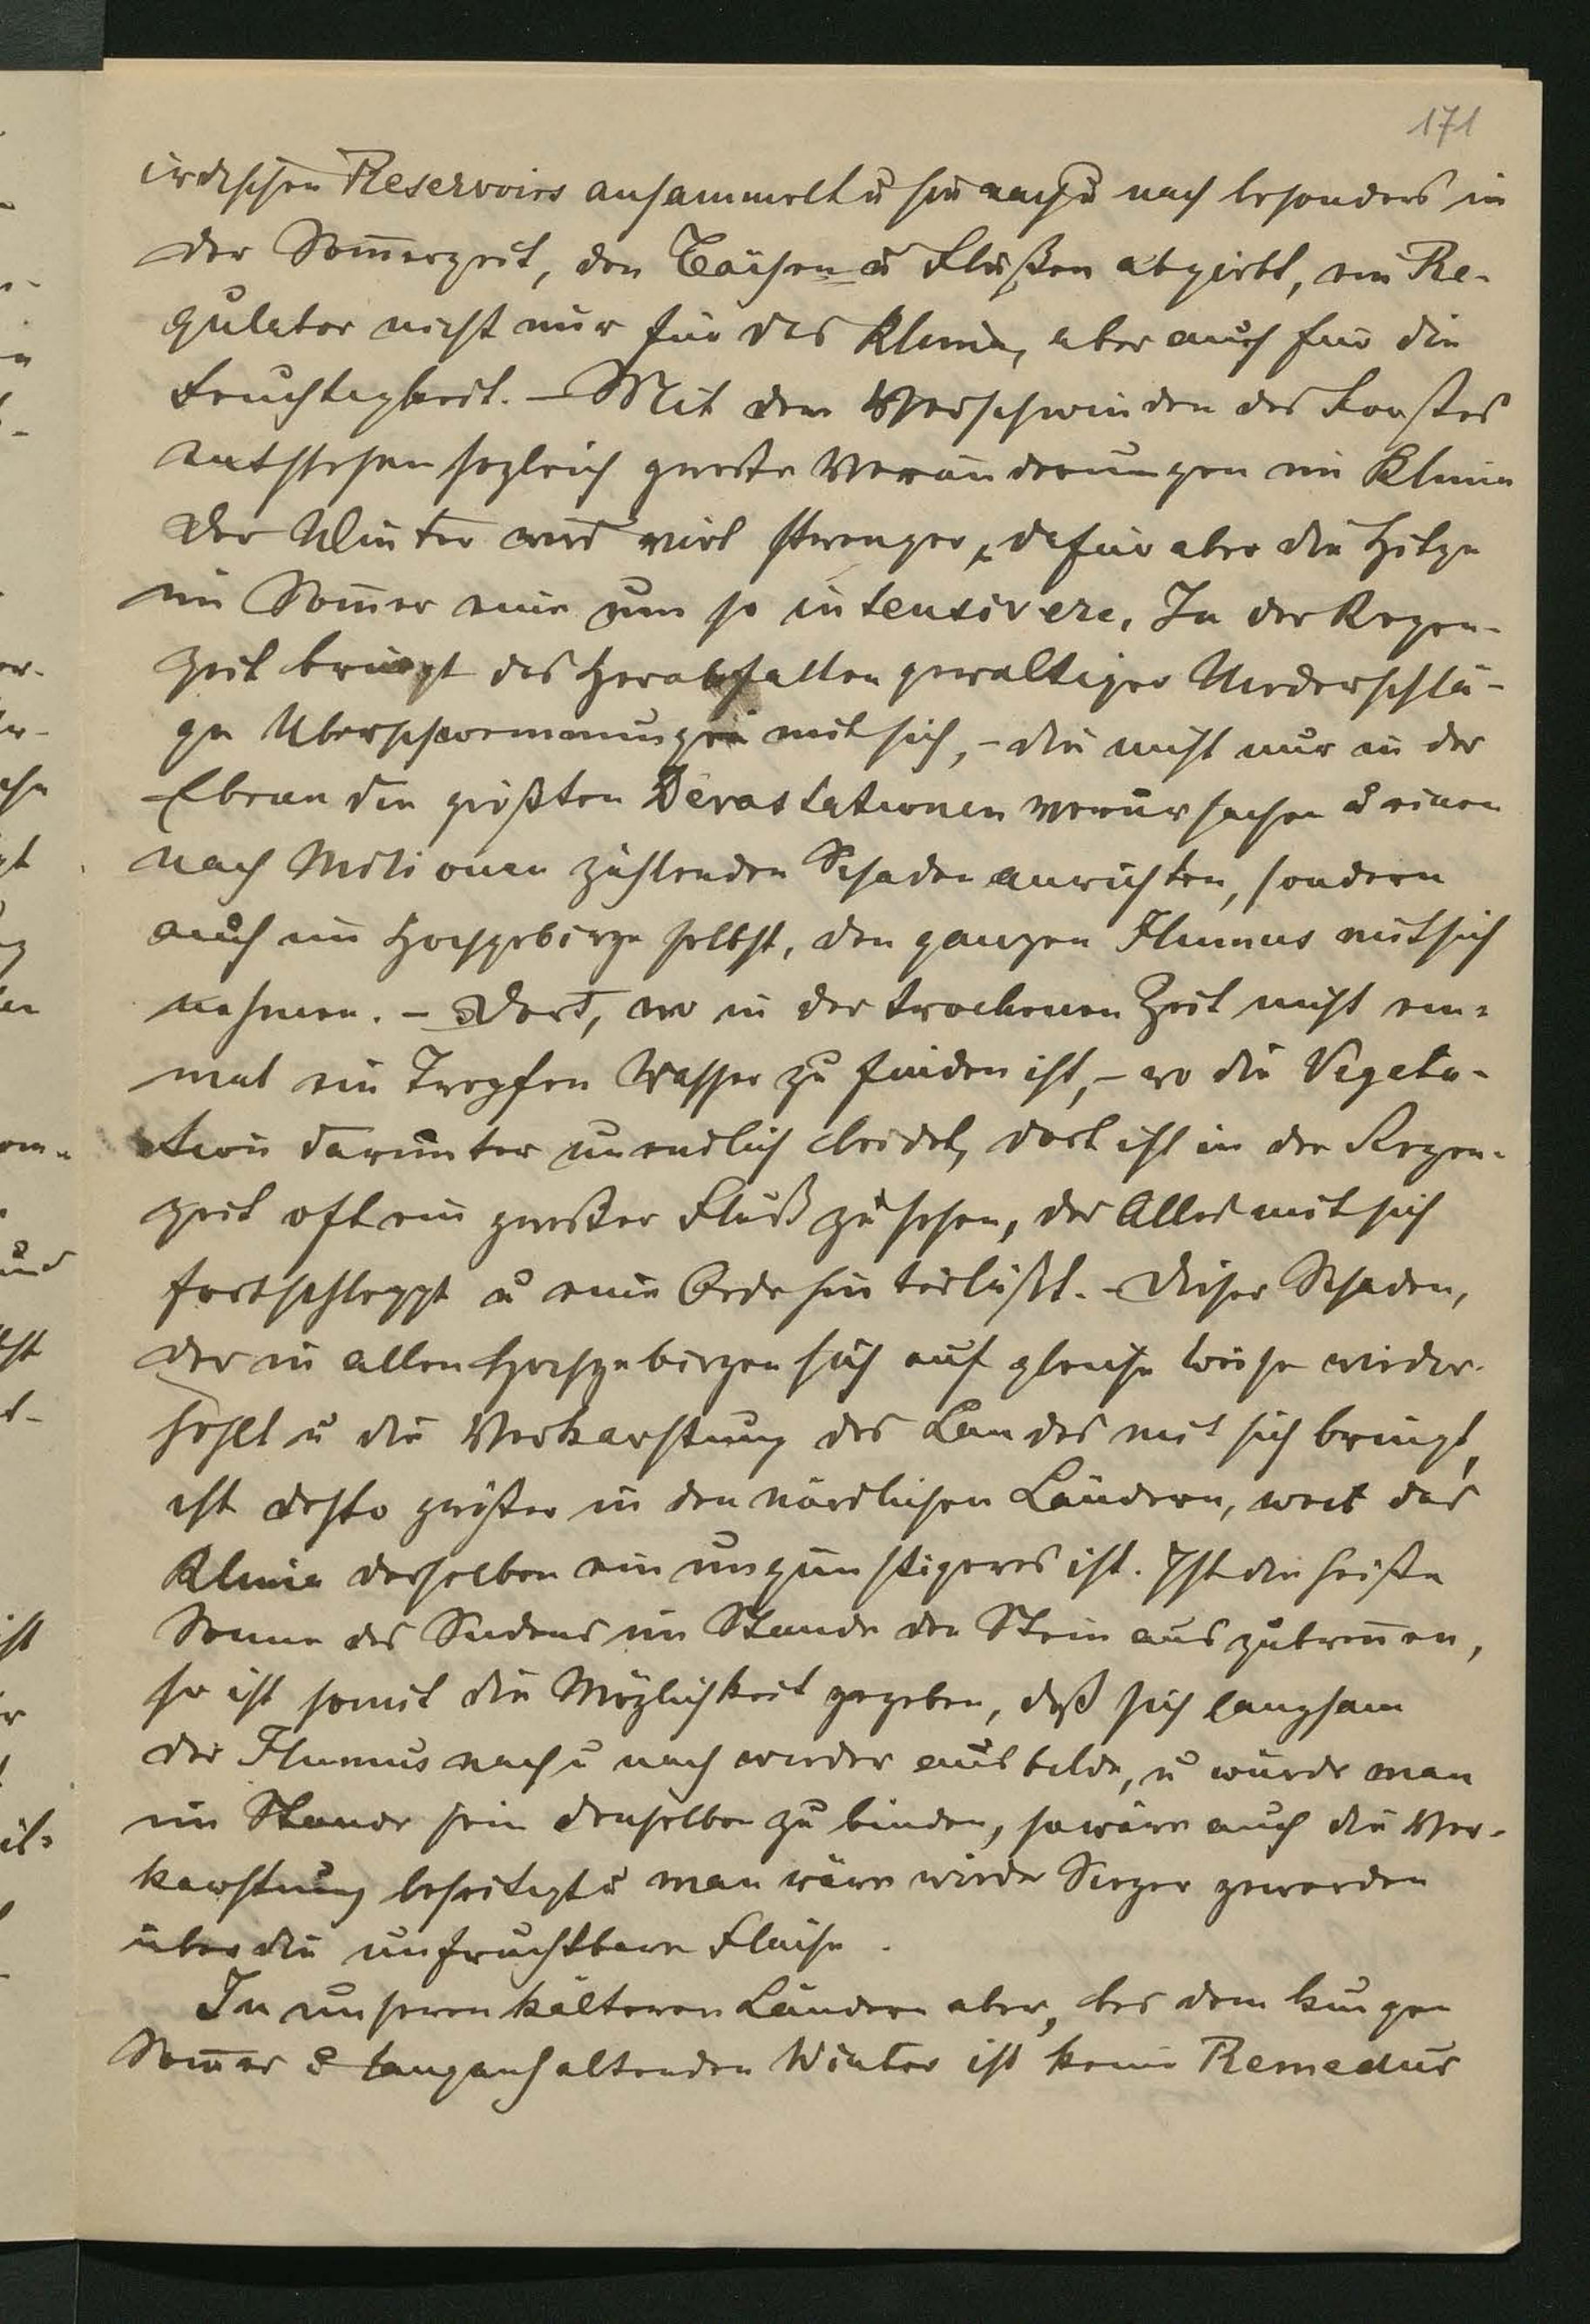 171
irdischen Reservoirs ansammelt u sie nach u nach besonders in
der Som̅erzeit, den Bächen u Flüßen abgiebt, ein Re-
gulator nicht nur für das Klima, aber auch für die
Feuchtigkeit. – Mit dem Verschwinden des Forstes
entstehen sogleich große Veränderungen im Klima
Der Winter wird viel strenger, dafür aber die Hitze
im Som̅er eine um so intensivere. In der Regen-
zeit bringt das Herabfallen gewaltiger Niederschlä-
ge Überschwemmungen mit sich, – die nicht nur in der
Ebenen die größten Devastationen verursachen u einen
nach Milionen zählenden Schaden anrichten, sondern
auch im Hochgebirge selbst, den ganzen Humus mit sich
nehmen. – Dort, wo in der trockenen Zeit nicht ein-
mal ein Tropfen Wasser zu finden ist, – wo die Vegeta-
tion darunter unendlich leidet, dort ist in der Regen-
zeit oft ein großer Fluß zu sehen, der Alles mit sich
fortschleppt u eine Oede hinterläßt. – Dieser Schaden,
der in allen Hochgebirgen sich auf gleiche Weise wieder-
hohlt u die Verkarstung des Landes mit sich bringt,
ist desto größer in den nördlichen Ländern, weil das
Klima derselben ein ungünstigeres ist. Ist die heiße
Sonne des Südens im Stande den Stein auszubren̅en,
so ist somit die Möglichkeit gegeben, daß sich langsam
der Humus nach u nach wieder ausbilde, u würde man
im Stande sein denselben zu binden, so wäre auch die Ver-
karstung beseitigt u man wäre wieder Sieger geworden
über die unfruchtbare Fläche.
In unseren kälteren Ländern aber, bei dem kurzen
Som̅er u langanhaltenden Winter ist keine Remedur